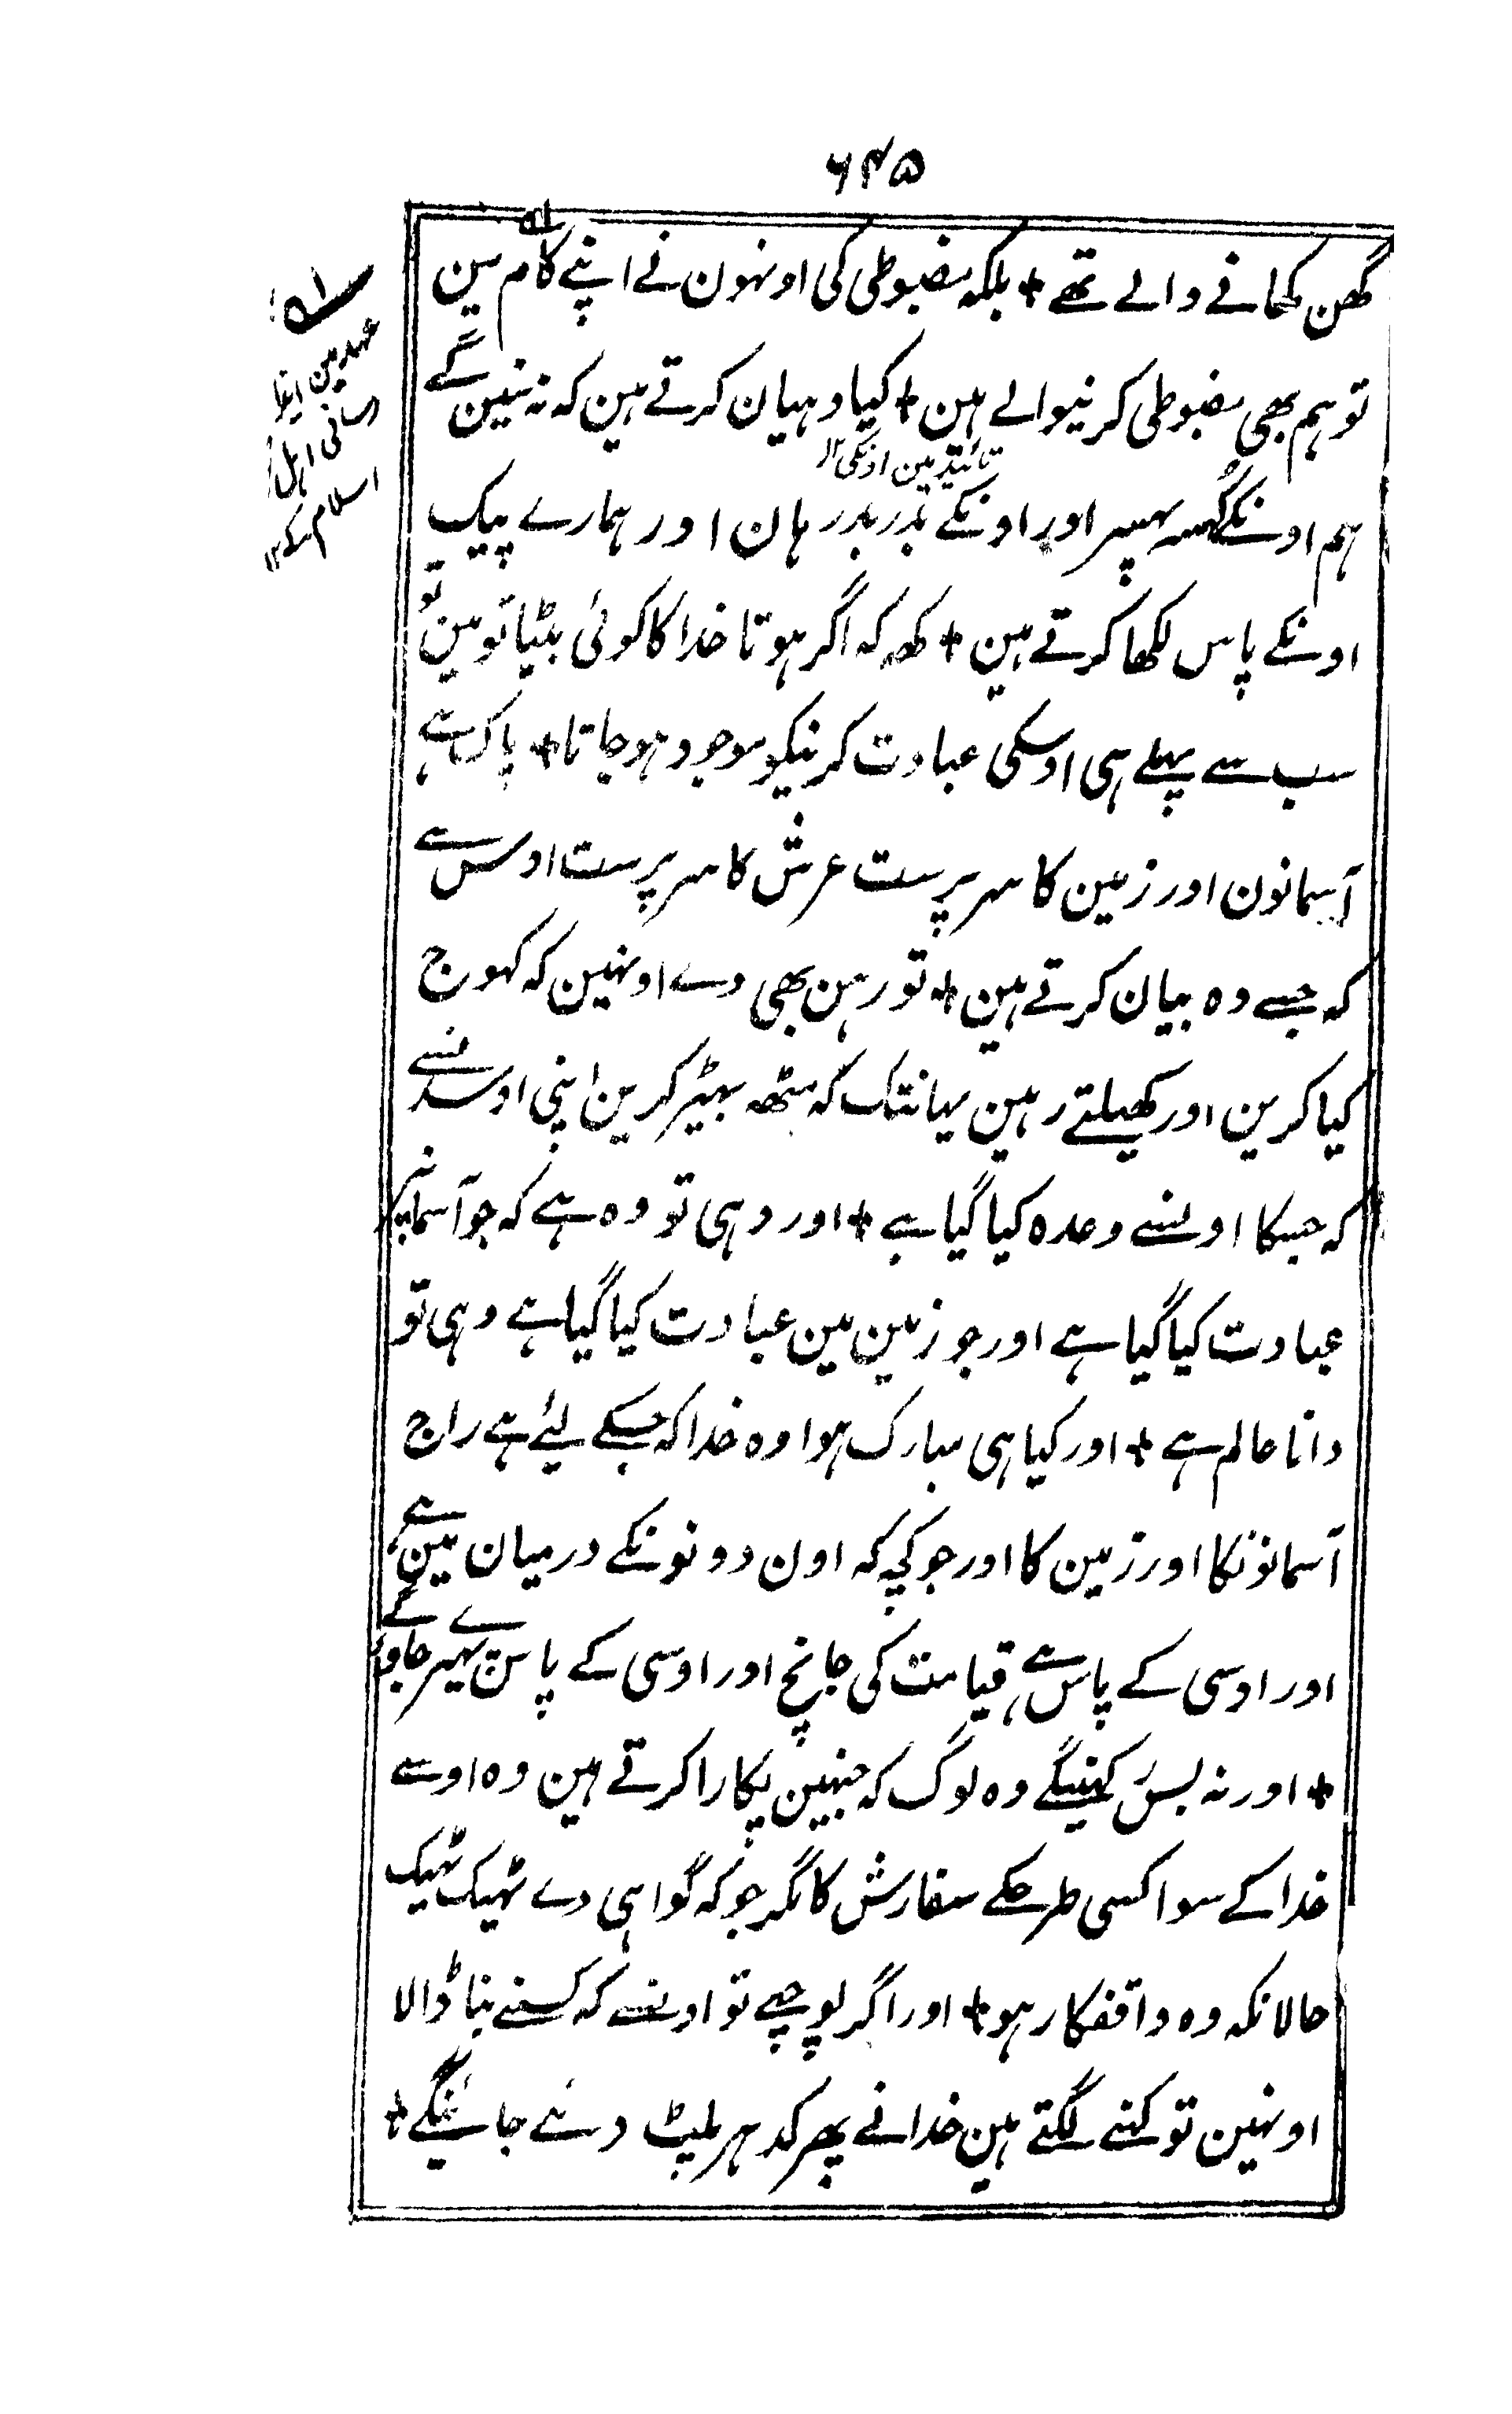 ۶۴۵
گھن کھانے والے تھے + بلکہ مضبوطی کی اونہون نے اپنے کام مین
تو ہم بھی مضبوطی کرنیوالے ہین + کیا دہیان کرتے ہین کہ نہ سنین گے
تائید مین اونکی ۱۲
ہم اونکے گھسر پھسر اور اونکے بدر بدر ہان اور ہمارے پیک
اونکے پاس لکھا کرتے ہین + کہہ کہ اگر ہوتا خدا کا کوئی بیٹا تو مین تو
سب سے پہلے ہی اوسکی عبادت کرنیکو موجود ہو جاتا + پاک ہے
آسمانون اور زمین کا سرپرست عرش کا سرپرست اوس سے
کہ جسے وہ بیان کرتے ہین + تو رہن بھی دے اونہین کہ کہوج
کیا کرین اور کھیلتے رہین یہانتک کہ مٹھ بہیڑ کرین اپنی اوسدنسے
کہ جسکا اونسے وعدہ کیا گیا ہے + اور وہی تو وہ ہے کہ جو آسمانپر
عبادت کیا گیا ہے اور جو زمین مین عبادت کیا گیا ہے وہی تو
دانا عالم ہے + اور کیا ہی مبارک ہوا وہ خدا کہ جسکے لیئے ہے راج
آسمانونکا اور زمین کا اور جو کچہ کہ اون دونونکے درمیان مین ہے
اور اوسی کے پاس ہے قیامت کی جانچ اور اوسی کے پاس پھیرے جاوگے
+ اور نہ بس رکھینگے وہ لوگ کہ جنہین پکارا کرتے ہین وہ اوسے
خدا کے سوا کسی طرحکے سفارش کا مگر جو کہ گواہی دے ٹہیک ٹہیک
حالانکہ وہ واقفکار ہو + اور اگر پوچھے تو اونسے کہ کسنے بنا ڈالا
اونہین تو کہنے لگتے ہین خدا نے پھر کدہر پلیٹ دئے جائینگے +
عہد مین ایذا
رسانی اہل
اسلام کے ۱۲